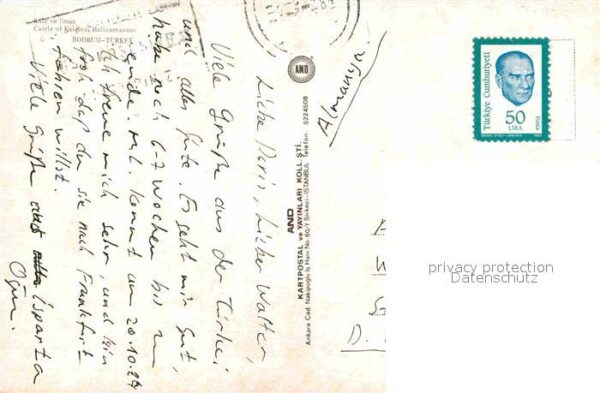 Kale ve liman
Castle of Knights, Halicarnassus
BODRUM-TURKEY
Liebe Doris, lieber Walter,
Viele Grüße aus der Türkei
und alles Gute. Es geht mir gut,
habe noch 6-7 Wochen bis zu
Ende
Ich freue mich sehr, und bin
froh daß du sie nach Frankfurt
fahren willst.
Viele Grüße aus Isparta
AND
AND
KARTPOSTAL ve YAYINLARI KOLL. ŞTİ.
Ankara Cad. Nakipoğlu İş Hanı No 80/7 Sirkeci-İSTANBUL Telefon: 5224508
Almanya
Türkiye Cumhuriyeti
50
LİRA
privacy protection
Datenschutz
D.